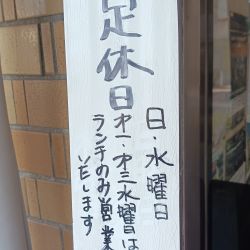 定休日
日・水曜日
才一・才三水曜は
ランチのみ営業
いたします